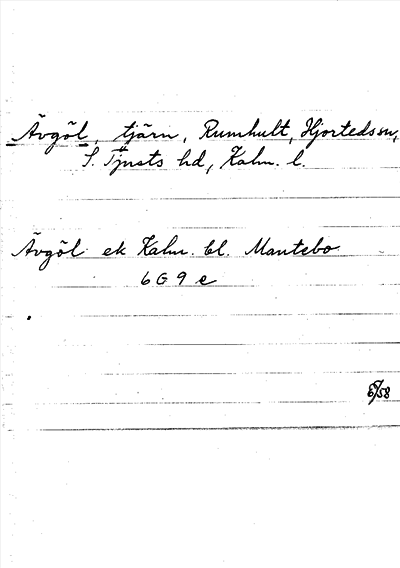 Ävgöl, tjärn, Rumhult, Hjortedssn,
S. Tjusts hd, Kalm. l.
Ävgöl ek Kalm. bl. Mantebo
6 G 9 e